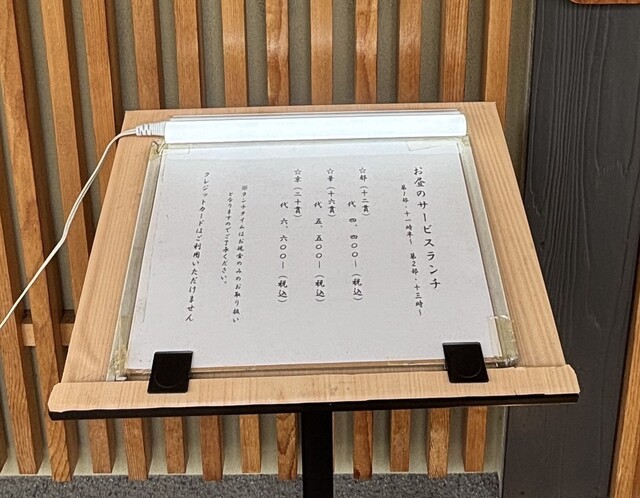 お昼のサービスランチ
第1部・十一時半~　第2部・十三時~
☆都（十二貫）
代　四、四〇〇ー（税込）
☆華（十六貫）
代　五、五〇〇ー（税込）
☆宴（二十貫）
代　六、六〇〇ー（税込）
※ランチタイムはお現金のみのお取り扱い
となりますのでご了承ください。
クレジットカードはご利用いただけません